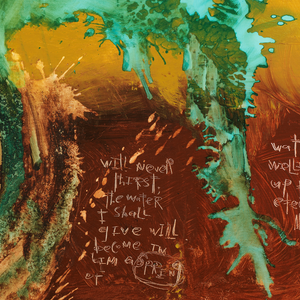 will never
thirst,
the water
I shall
give will
become in
him a
wat
well
up